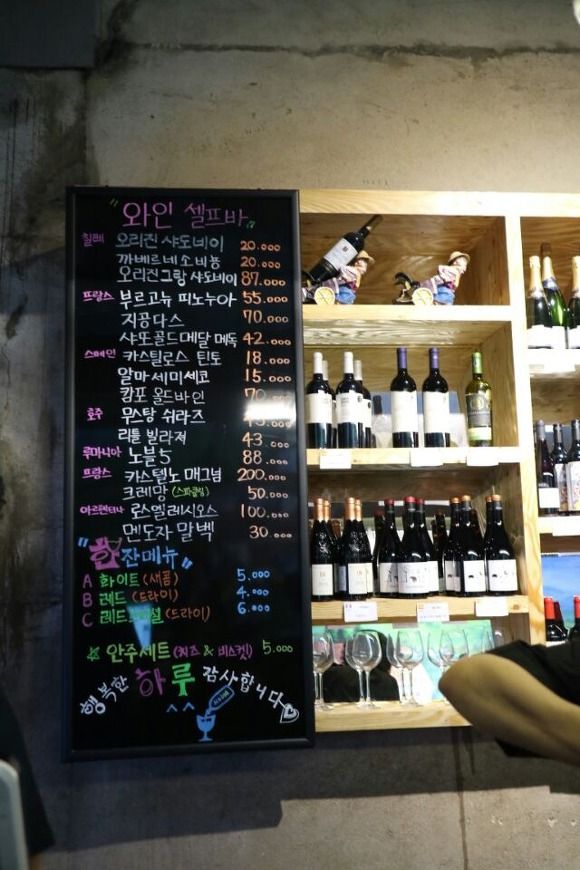 "와인 셀프바"
칠레 오리진 샤도네이 20.000
까베르네소비뇽 20.000
오리진그랑 샤도네이 87.000
프랑스 부르고뉴 피노누아 55.000
지공다스 70.000
샤또골드메달 메독 42.000
스페인 카스틸로스 틴토 18.000
알마 세미세코 15.000
캄포 올드바인 70.000
호주 무스탕 쉬라즈
리틀 빌라져 43.000
루마니아 노블5 88.000
프랑스 카스텔노 매그넘 200.000
크레망 (스파클링) 50.000
아르헨티나 로스엘레시오스 100.000
멘도자 말벡 30.000
"한잔메뉴"
A 화이트 (새콤) 5.000
B 레드 (드라이) 4.000
C (드라이) 6.000
안주세트 (치즈 & 비스켓) 5.000
행복한 하루 감사합니다
^^